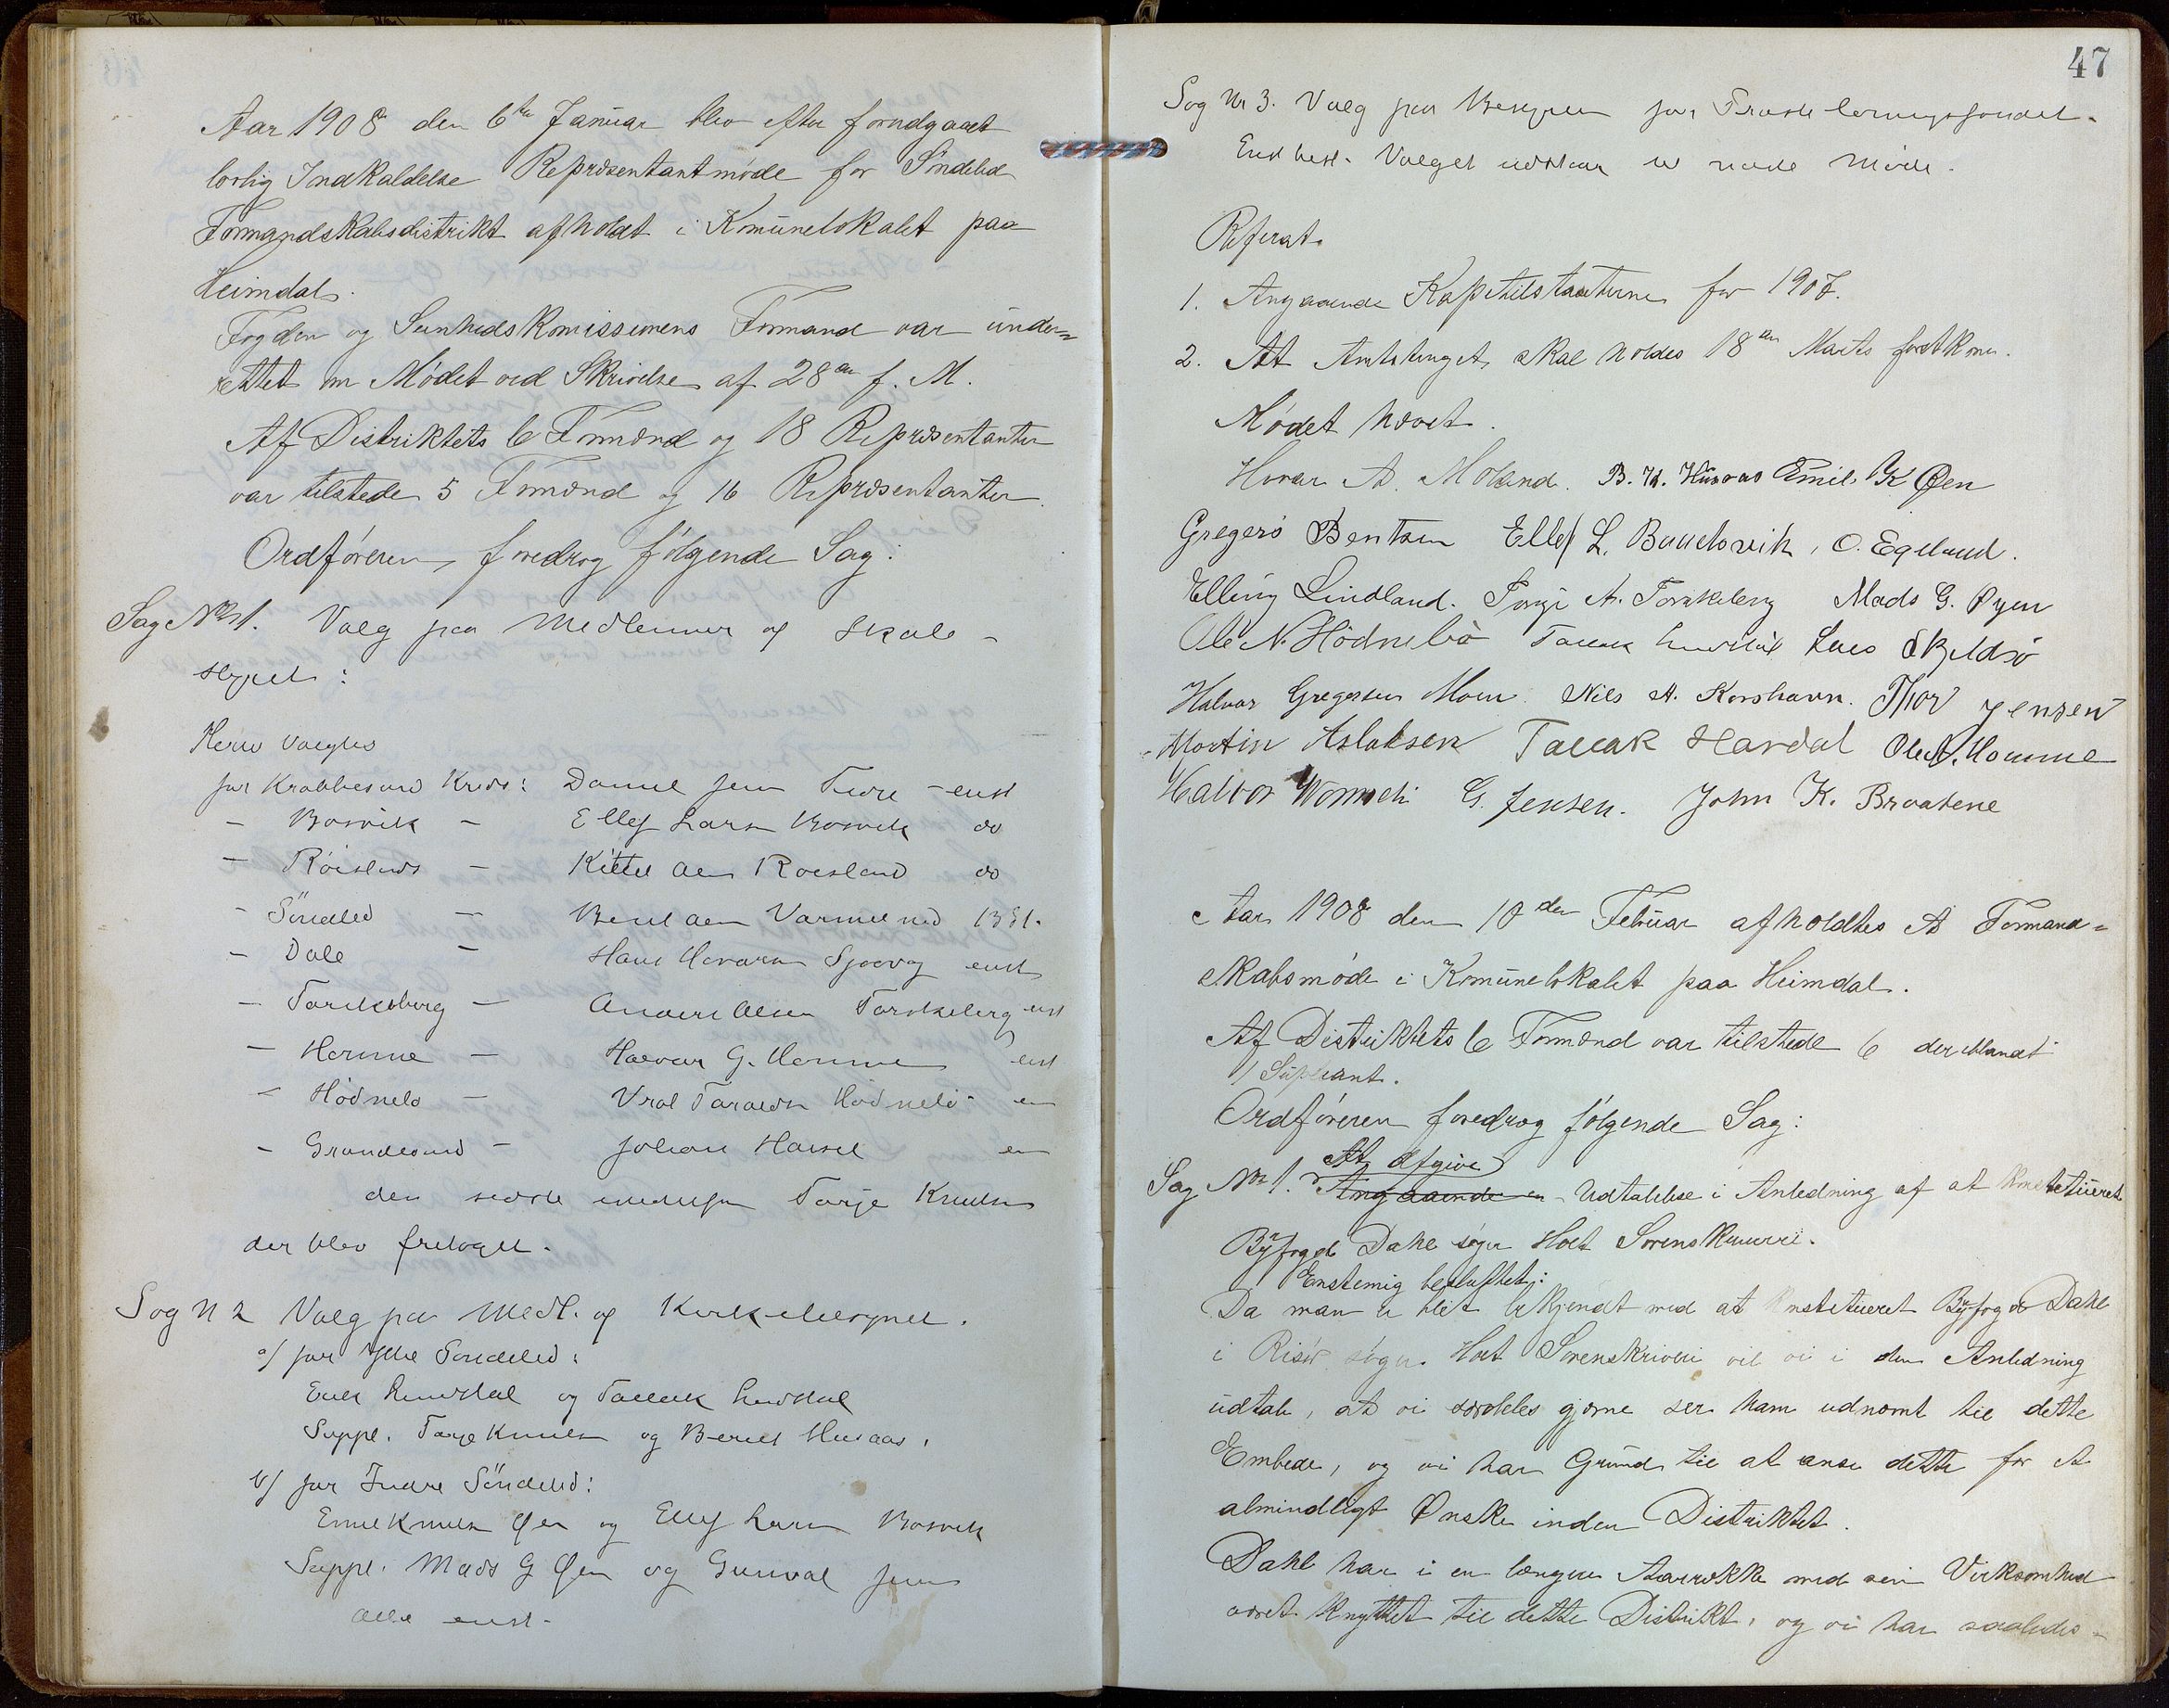 Aar 1908 den 6te Januar blev efter forudgaaet
lovlig Indkaldelse Repræsentantmøde for Søndeled
Formandskabsdistrikt afholdt i Komunelokalet paa
Heimdal.
Fogden og Sunhedskomissionens Formand var under-
rettet om Mødet ved Skrivelse af 28de f. M.
Af Distriktets 6 Formænd og 18 Repræsentanter
var tilstede 5 Formænd og 16 Repræsentanter.
Ordføreren foredrog følgende Sag:
Sag No 1. Valg paa Medlemmer af Skole-
styret:
Herw valgtes
for Krabbesund Kreds: Daniel Jens Tvere - enst
- Bosvik - Ellef Larsn Bosvik do
- Røislands - Kittel Aen Roesland do
- Søndeled - Bent Aen Varmelned 13 St.
- Dale - Hans Havorsn Sjaavag enst
- Torskeberg - Anders Olsen Torskeberg enst
- Homme - Halvor G. Homme enst
- Hødnebø - Vrol Taraldsn Hødnebø en
- Grundesund - Johan Hansel en
den sidste Tarje Knutsn
der blev fritaget.
Sag N 2 Valg paa Medl. af Kirketilsynet.
a/ for Ytre Søndeled:
Erik Lindstøl og Tallak Lindstøl
Suppl. Tarje Knutsn og Berent Husaas.
b/ for Indre Søndeled:
Emil Knutsn Øen og Ellef Larsn Bosvik
Suppl. Mads G Øen og Gunval Jens
alle enst.
47
Sag Nr 3. Valg paa Bestyrer for
Enst best. Valget udstaar til næste Møde.
Referat.
1. Angaaende Kapitelstaxterne for 1907.
2. At Amtstinget skal holdes 18de Marts førstkom.
Mødet hævet.
Havar A. Moland. B. H. Husaas Emil K Øen
Gregers Bentsen Ellef L. Baudsvik, O. Egeland.
Elling Lindland. Torje A. Torskeberg Mads G. Øyen
Ole N. Hødnebø Tallak Lindstøl Lars Skjeldsø
Halvor Gregersen Moen Nils A. Korshavn. Thor Jensen
Martin Aslaksen Tallak Havdal Ole A. Homme
Halvor Wormeli G. Jensen. John K. Braatene
Aar 1908 den 10den Februar afholdtes et Formand-
skabsmøde i Komunelokalet paa Heimdal.
Af Distriktets 6 Formænd var tilstede 6 deriblandt
1 Supleant.
Ordføreren foredrog følgende Sag:
At afgive
Sag No 1. Angaaende en Udtalelse i Anledning af at konstitueret
Byfoged Dahl søger Holt Sorenskriveri.
Enstemig besluttet:
Da man er blit bekjendt med at konstitueret Byfoged Dahl
i Risør søger Holt Sorenskriveri vil vi i den Anledning
udtale, at vi særdeles gjerne ser ham udnævnt til dette
Embede, og vi har Grund til at anse dette for et
almindeligt Ønske inden Distriktet.
Dahl har i en længere Aarrække med sin Virksomhed
været knyttet til dette Distrikt, og vi har saaledes